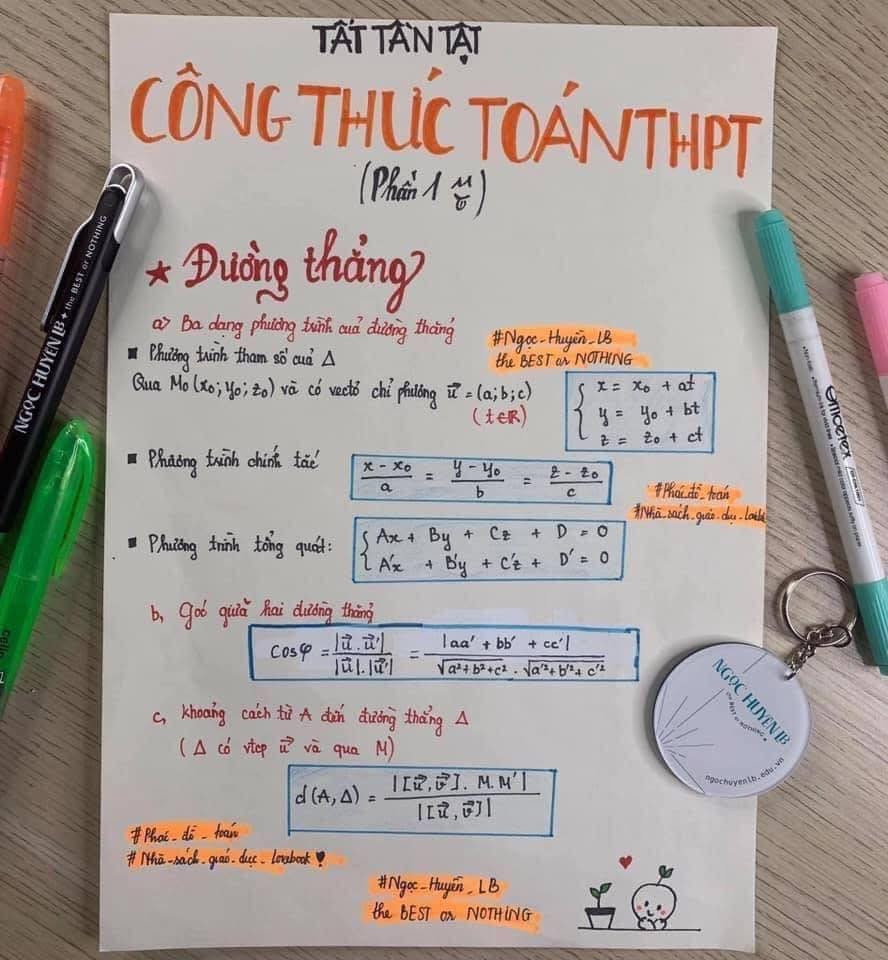 TẤT TẦN TẬT
CÔNG THỨC TOÁN THPT
(Phần 1
★ Đường thẳng
a> Ba dạng phương trình của đường thẳng
#Ngọc_Huyền_LB
the BEST or NOTHING
■ Phương trình tham số của Δ
Qua M₀(x₀; y₀; z₀) và có vectơ chỉ phương u⃗ = (a; b; c)
(t∈R)
{ x = x₀ + at
y = y₀ + bt
z = z₀ + ct
■ Phương trình chính tắc
(x - x₀)/a = (y - y₀)/b = (z - z₀)/c
#Phác_đồ_toán
#Nhà_sách_giáo_dục
■ Phương trình tổng quát:
{ Ax + By + Cz + D = 0
A'x + B'y + C'z + D' = 0
b, Góc giữa hai đường thẳng
cosφ = |u⃗ . u⃗'| / |u⃗| . |u⃗'| = |aa' + bb' + cc'| / √(a² + b² + c²) . √(a'² + b'² + c'²)
c, Khoảng cách từ A đến đường thẳng Δ
(Δ có vtcp u⃗ và qua M)
d(A, Δ) = |[u⃗, v⃗] . M.M'| / |[u⃗, v⃗]|
#Phác_đồ_toán
#Nhà_sách_giáo_dục_Lovebook
#Ngọc_Huyền_LB
the BEST or NOTHING
NGỌC HUYỀN LB + the BEST or NOTHING
Officetex
NGỌC HUYỀN LB
the BEST or NOTHING
ngochuyenlb.edu.vn